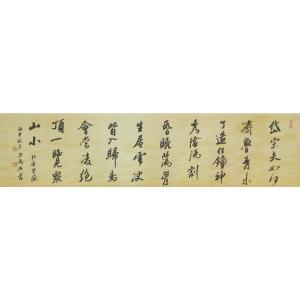 岱宗夫如何
齊魯青未
了造化鐘神
秀陰陽割
昏曉蕩胷
生層雲決
眥入歸鳥
會當凌絕
頂一覽眾
山小
杜甫望嶽